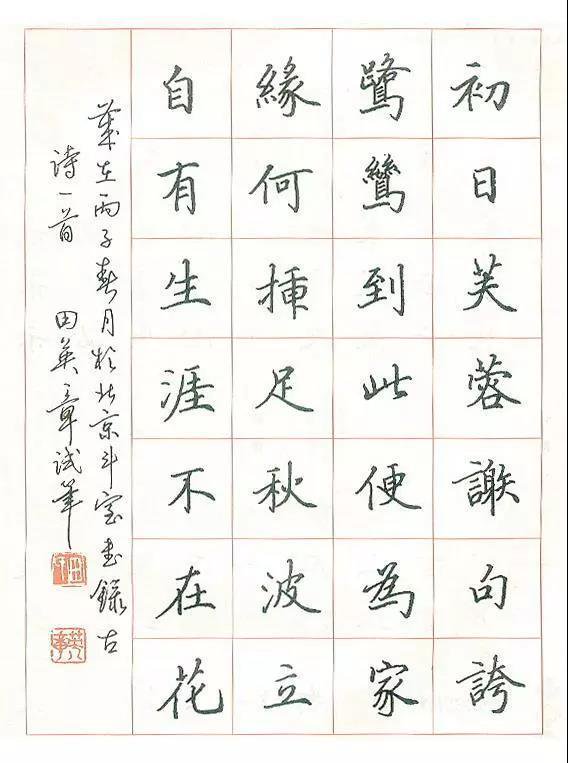 初日芙蓉謝句誇
鷺鷥到此便為家
緣何揷足秋波立
自有生涯不在花
歲在丙子春月於北京斗室書錄古
詩一首 田英章試筆